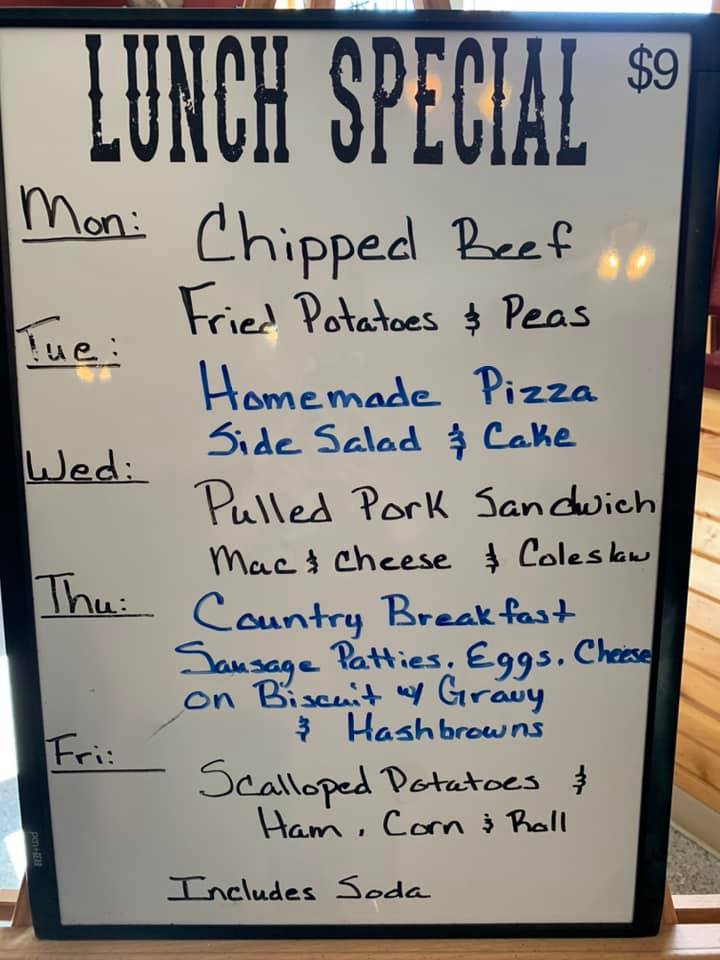 LUNCH SPECIAL $9
Mon: Chipped Beef
Fried Potatoes & Peas
Tue:
Homemade Pizza
Side Salad & Cake
Wed:
Pulled Pork Sandwich
Mac & Cheese & Coleslaw
Thu: Country Breakfast
Sausage Patties. Eggs. Cheese
on Biscuit w/ Gravy
& Hashbrowns
Fri:
Scalloped Potatoes &
Ham, Corn & Roll
Includes Soda